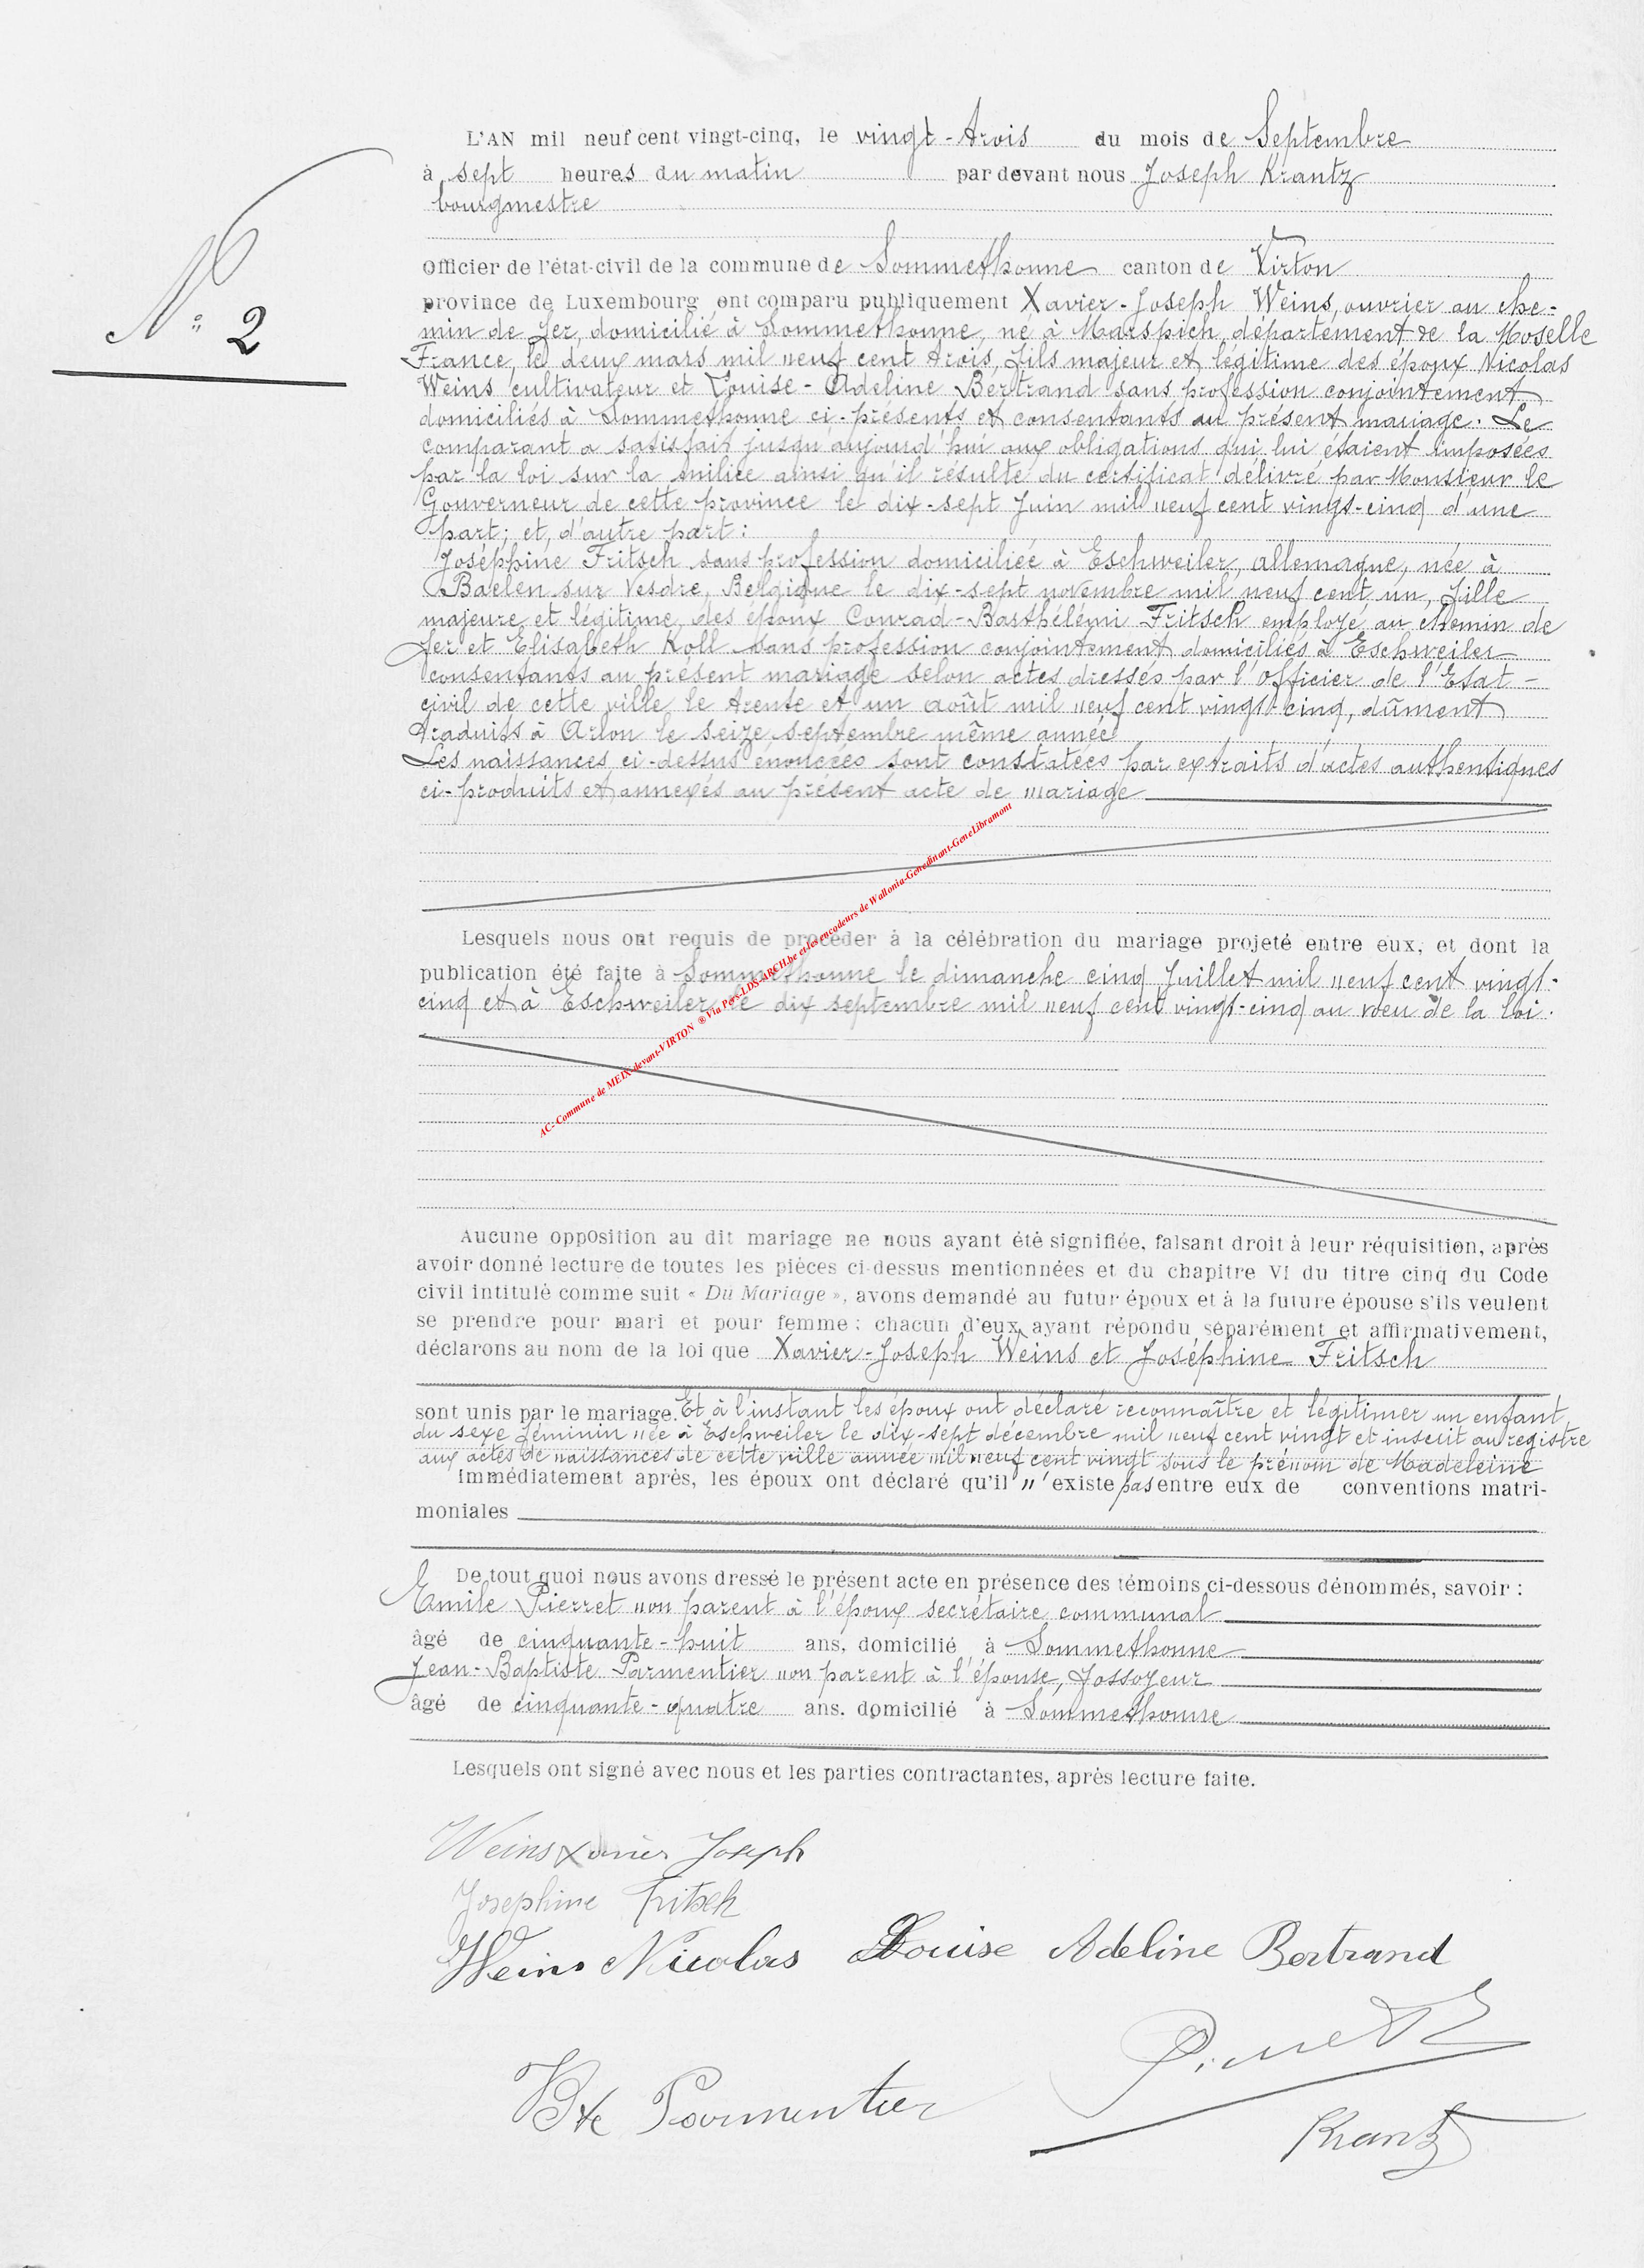 L'AN mil neuf cent vingt-cinq, le vingt-trois du mois de Septembre
à sept heures du matin par devant nous Joseph Krantz
bourgmestre
N° 2
Officier de l'état-civil de la commune de Sommethonne canton de Virton
province de Luxembourg ont comparu publiquement Xavier-Joseph Weins, ouvrier au che-
min de fer, domicilié à Sommethonne, né à Marspich, département de la Moselle
France, le deux mars mil neuf cent trois, fils majeur et légitime des époux Nicolas
Weins cultivateur et Louise-Adeline Bertrand sans profession conjointement
domiciliés à Sommethonne ci-présents et consentants au présent mariage. Le
comparant a satisfait jusqu'aujourd'hui aux obligations qui lui étaient imposées
par la loi sur la milice ainsi qu'il résulte du certificat délivré par Monsieur le
Gouverneur de cette province le dix-sept Juin mil neuf cent vingt-cinq d'une
part; et, d'autre part:
Joséphine Fritsch sans profession domiciliée à Eschweiler, Allemagne, née à
Baelen sur Vesdre, Belgique le dix-sept novembre mil neuf cent un, fille
majeure et légitime des époux Conrad-Barthélémi Fritsch employé au chemin de
fer et Elisabeth Koll sans profession conjointement domiciliés à Eschweiler
consentants au présent mariage selon actes dressés par l'officier de l'Etat-
civil de cette ville le trente et un août mil neuf cent vingt-cinq, dûment
traduits à Arlon le seize septembre même année
Les naissances ci-dessus énoncées sont constatées par extraits d'actes authentiques
ci-produits et annexés au présent acte de mariage
AC- Commune de MEIX-devant-VIRTON ® Via Pers-LDS-ARCH.be et les encodeurs de Wallonia-Genedinant-GeneLibramont
Lesquels nous ont requis de procéder à la célébration du mariage projeté entre eux, et dont la
publication été faite à Sommethonne le dimanche cinq Juillet mil neuf cent vingt-
cinq et à Eschweiler le dix septembre mil neuf cent vingt-cinq au vœu de la loi.
Aucune opposition au dit mariage ne nous ayant été signifiée, faisant droit à leur réquisition, après
avoir donné lecture de toutes les pièces ci-dessus mentionnées et du chapitre VI du titre cinq du Code
civil intitulé comme suit « Du Mariage », avons demandé au futur époux et à la future épouse s'ils veulent
se prendre pour mari et pour femme : chacun d'eux ayant répondu séparément et affirmativement,
déclarons au nom de la loi que Xavier-Joseph Weins et Joséphine Fritsch
sont unis par le mariage. Et à l'instant les époux ont déclaré reconnaître et légitimer un enfant
du sexe féminin née à Eschweiler le dix-sept décembre mil neuf cent vingt et inscrit au registre
aux actes de naissances de cette ville année mil neuf cent vingt sous le prénom de Madeleine
Immédiatement après, les époux ont déclaré qu'il n'existe pas entre eux de conventions matri-
moniales
De tout quoi nous avons dressé le présent acte en présence des témoins ci-dessous dénommés, savoir :
Emile Pierret non parent à l'époux secrétaire communal
âgé de cinquante-huit ans, domicilié à Sommethonne
Jean-Baptiste Parmentier non parent à l'épouse, fossoyeur
âgé de cinquante-quatre ans. domicilié à Sommethonne
Lesquels ont signé avec nous et les parties contractantes, après lecture faite.
Weins Xavier Joseph
Josephine Fritsch
Weins Nicolas Louise Adeline Bertrand
Pierret
Bte Parmentier
Krantz